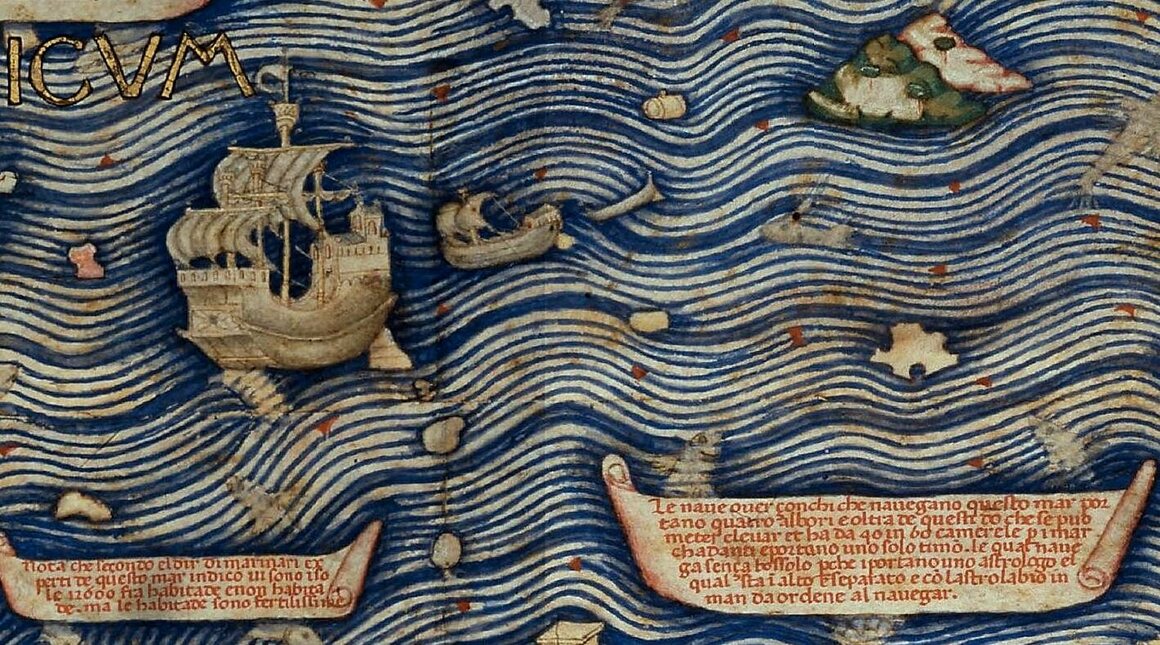 ICVM
Nota che secondo el dir di marinari ex
perti de questo mar indico ui sono iso
le 12600 fra habitade e non habita
de. ma le habitade sono fertilissime
Le naue ouer çonchi che nauegano questo mar por
tano quatro albori e oltra de questi do che se puo
meter e leuar et ha da 40 in 60 camerele p i mar
chadanti e portano uno solo timō. le qual naue
ga sença bossolo pche i portano uno astrologo el
qual sta ī alto e separato e cō lastrolabio in
man da ordene al nauegar.